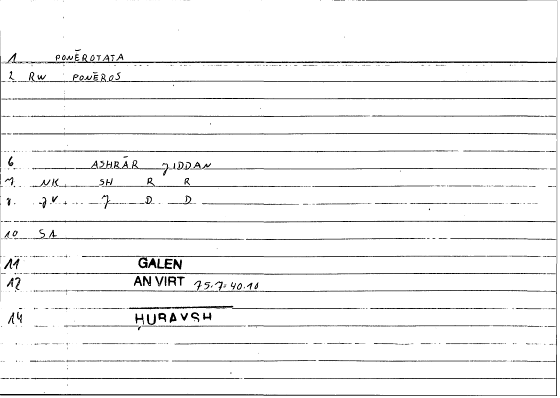 1 PONĒROTATA
2 RW PONĒROS
6 ASHRĀR JIDDAN
7 NK SH R R
8 JV J D D
10 SA
11 GALEN
12 AN VIRT 75.7-40.10
14 ḤUBAYSH